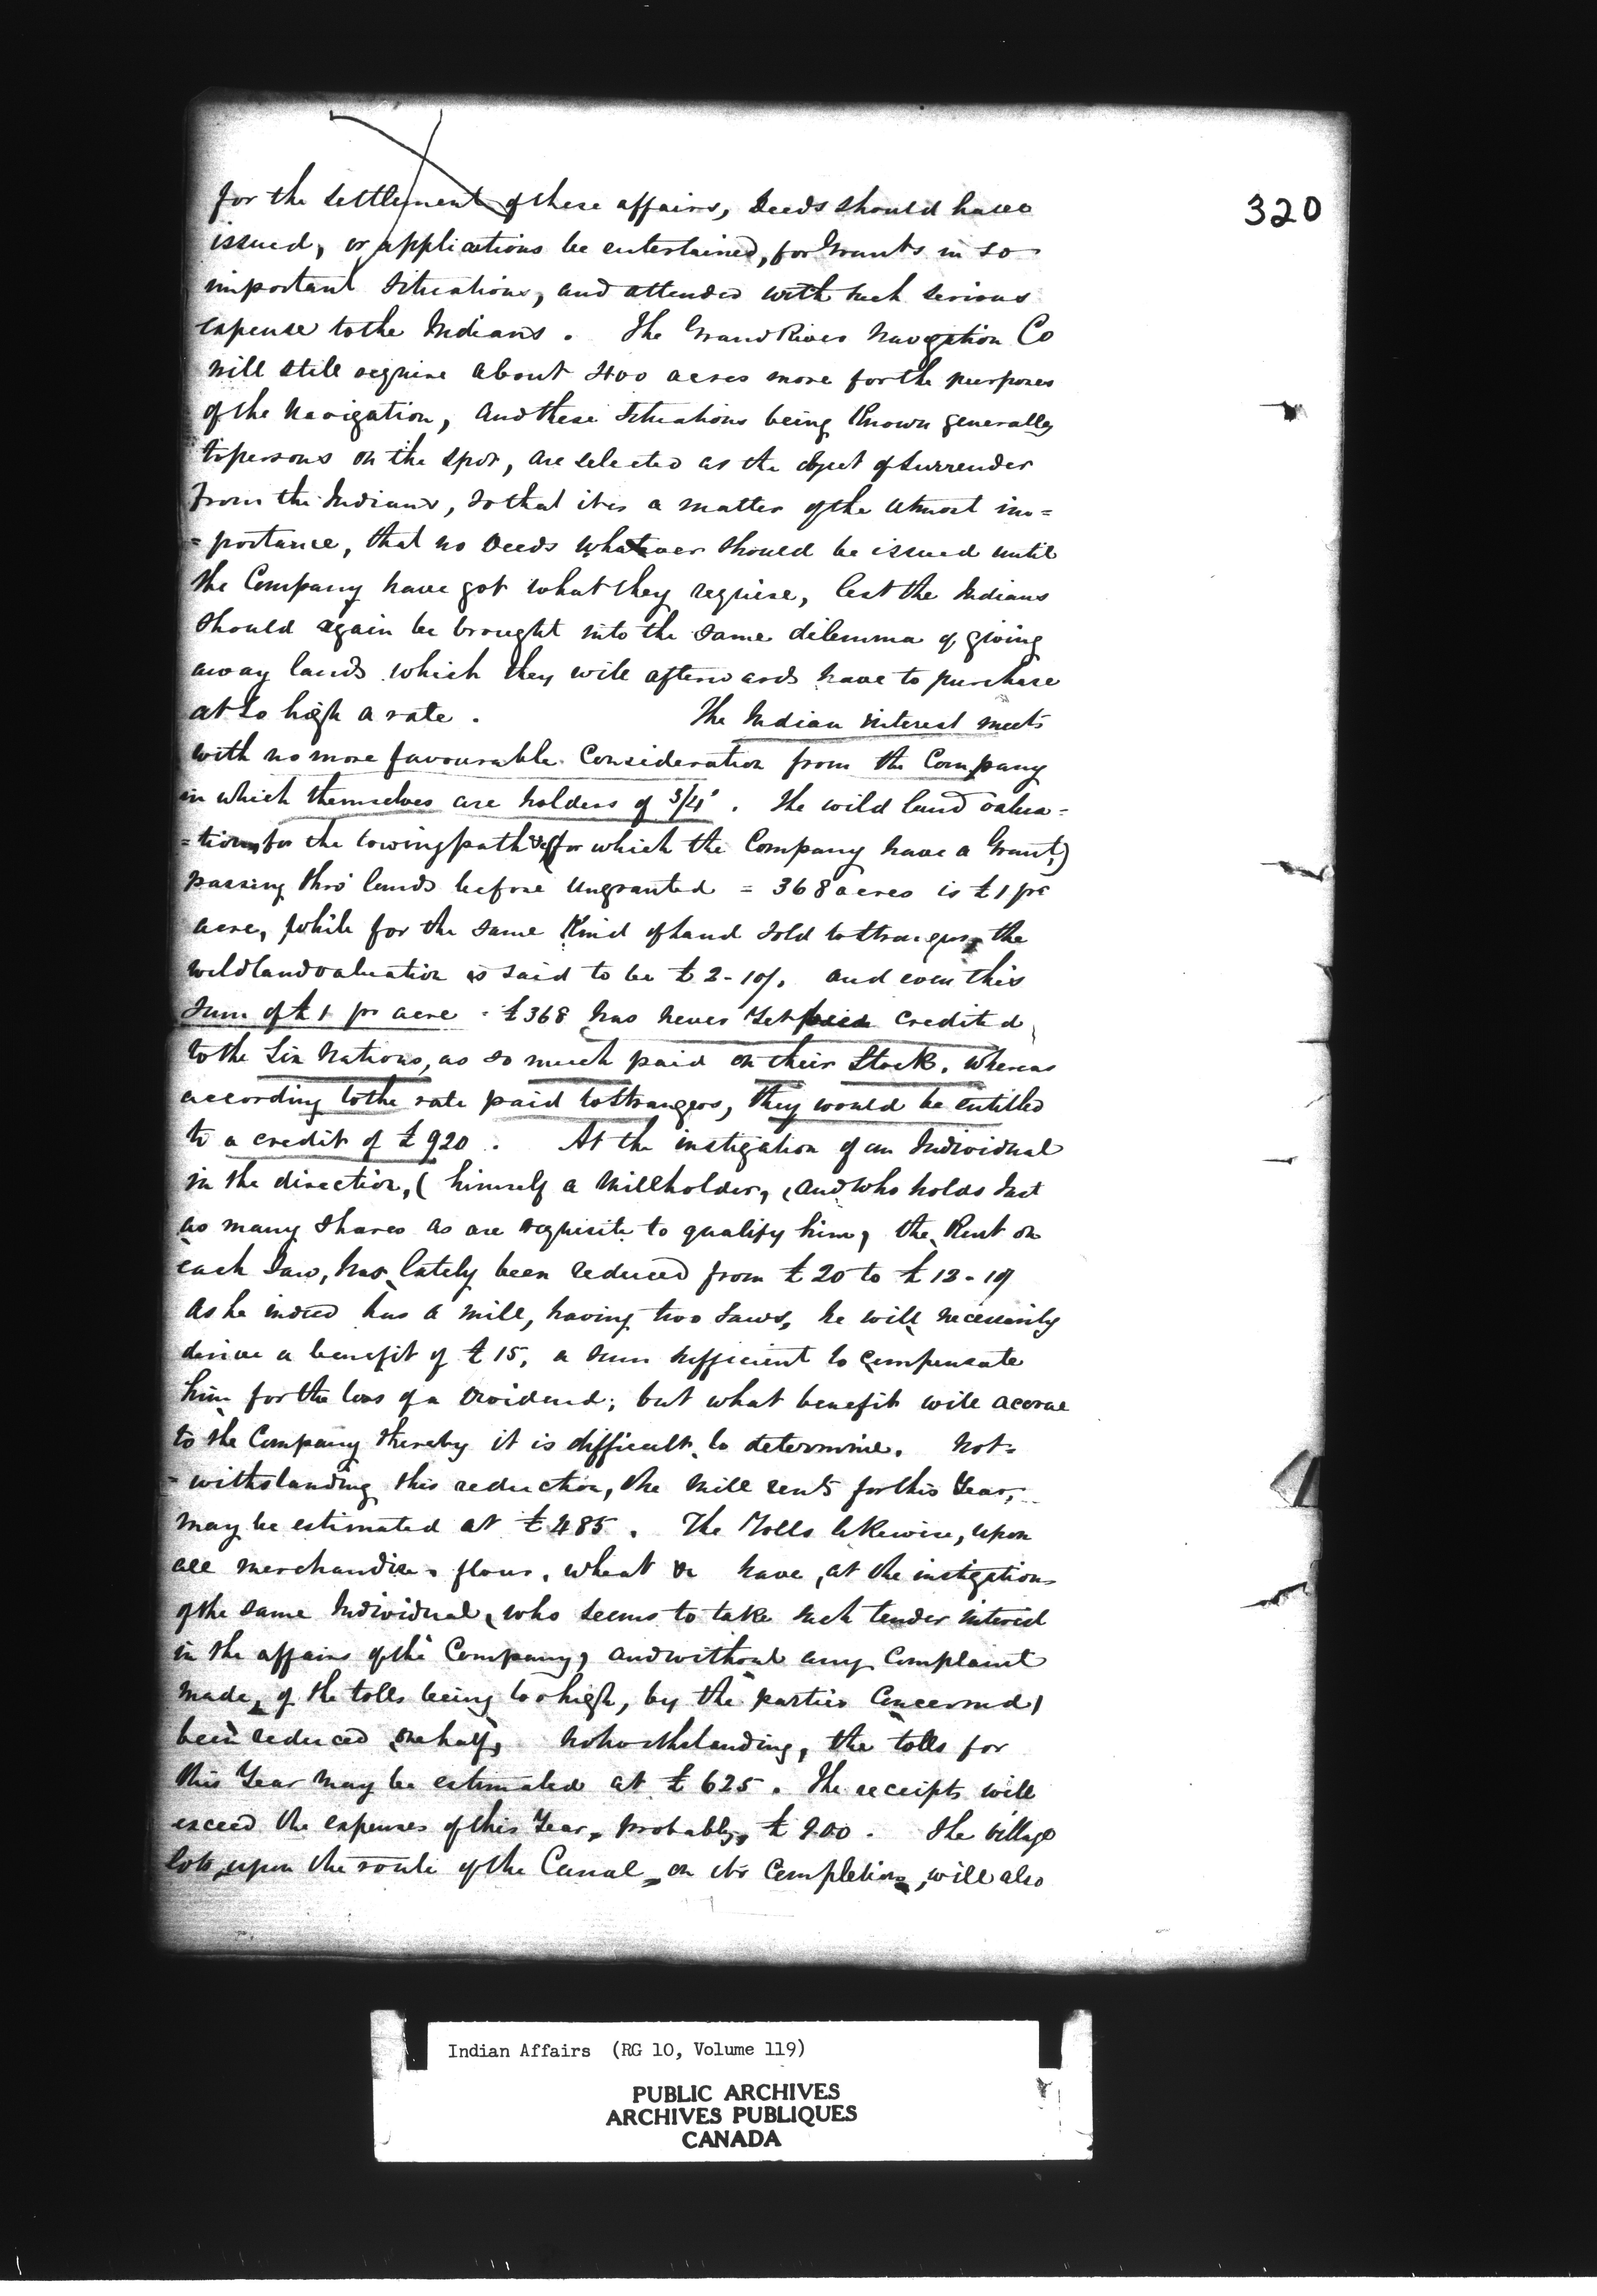 320
for the settlement of these affairs, Deeds should have
issued, or applications be entertained, for Grants in so
important situations, and attended with such serious
expense to the Indians. The Grand River Navigation Co
will still require about 400 acres more for the purposes
of the Navigation, and these situations being known generally
to persons on the spot, are selected as the object of surrender
from the Indians, so that it is a matter of the utmost im=
=portance, that no Deeds whatever should be issued until
the Company have got what they require, lest the Indians
should again be brought into the same dilemma of giving
away lands which they will afterwards have to purchase
at so high a rate. The Indian interest meets
with no more favourable consideration from the Company
in which themselves are holders of 3/4s. The wild land valua=
=tion for the towing path &c (for which the Company have a Grant,)
passing thro' lands before ungranted = 368 acres is £1 pr
acre, while for the same kind of land sold to strangers the
wild land valuation is said to be £2-10/. and even this
sum of £1 pr acre = £368 has never yet credited
to the Six Nations, as so much paid on their Stock. Whereas
according to the rate paid to strangers, they would be entitled
to a credit of £920. At the instigation of an Individual
in the direction, (himself a Millholder, and who holds just
as many shares as are requisite to qualify him, the Rent on
each Saw, has lately been reduced from £20 to £12-10/
As he indeed has a mill, having two saws, he will necessarily
derive a benefit of £15, a sum sufficient to compensate
him for the loss of a Dividend; but what benefit will accrue
to the Company thereby it is difficult to determine. Not=
=withstanding this reduction, the Mill rents for this Year,
may be estimated at £485. The Tolls likewise, upon
all merchandise, flour, wheat &c have, at the instigation
of the same Individual, who seems to take such tender interest
in the affairs of the Company, and without any complaint
made, of the tolls being too high, by the parties concerned,
been reduced one half, Notwithstanding, the tolls for
this Year may be estimated at £625. The receipts will
exceed the expenses of this Year, probably, £200. The village
lots upon the route of the Canal, on its completion, will also
Indian Affairs (RG 10, Volume 119)
PUBLIC ARCHIVES
ARCHIVES PUBLIQUES
CANADA